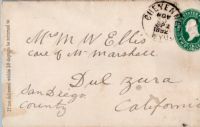 If not delivered within 10 days, to return to
CHEYENNE
NOV
1892
Mr M W Ellis
care of Mr Marshall
Dulzura
San Diego
County
California